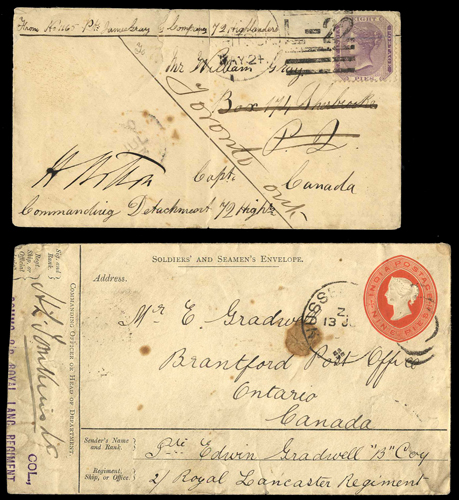 From No 1165 Pte James Gray G Company 72 Highlanders
Mr William Gray
Box 171 Sherbrooke
P. Q.
Toronto Ont
Capt.
Canada
Commanding Detachment 72 Highrs
MAY 24
2
SOLDIERS' AND SEAMEN'S ENVELOPE.
Address.
INDIA POSTAGE
ONE ANNA
Mr E. Gradwell
Brantford Post Office
Ontario
Canada
13 J
Sender's Name and Rank.
Pte Edwin Gradwell "B" Coy
Regiment, Ship, or Office
2/ Royal Lancaster Regiment
COMMANDING OFFICER OR HEAD OF DEPARTMENT.
Sig. and Rank.
Regt. Ship, or Official
COL.,
ROYAL LANC. REGIMENT